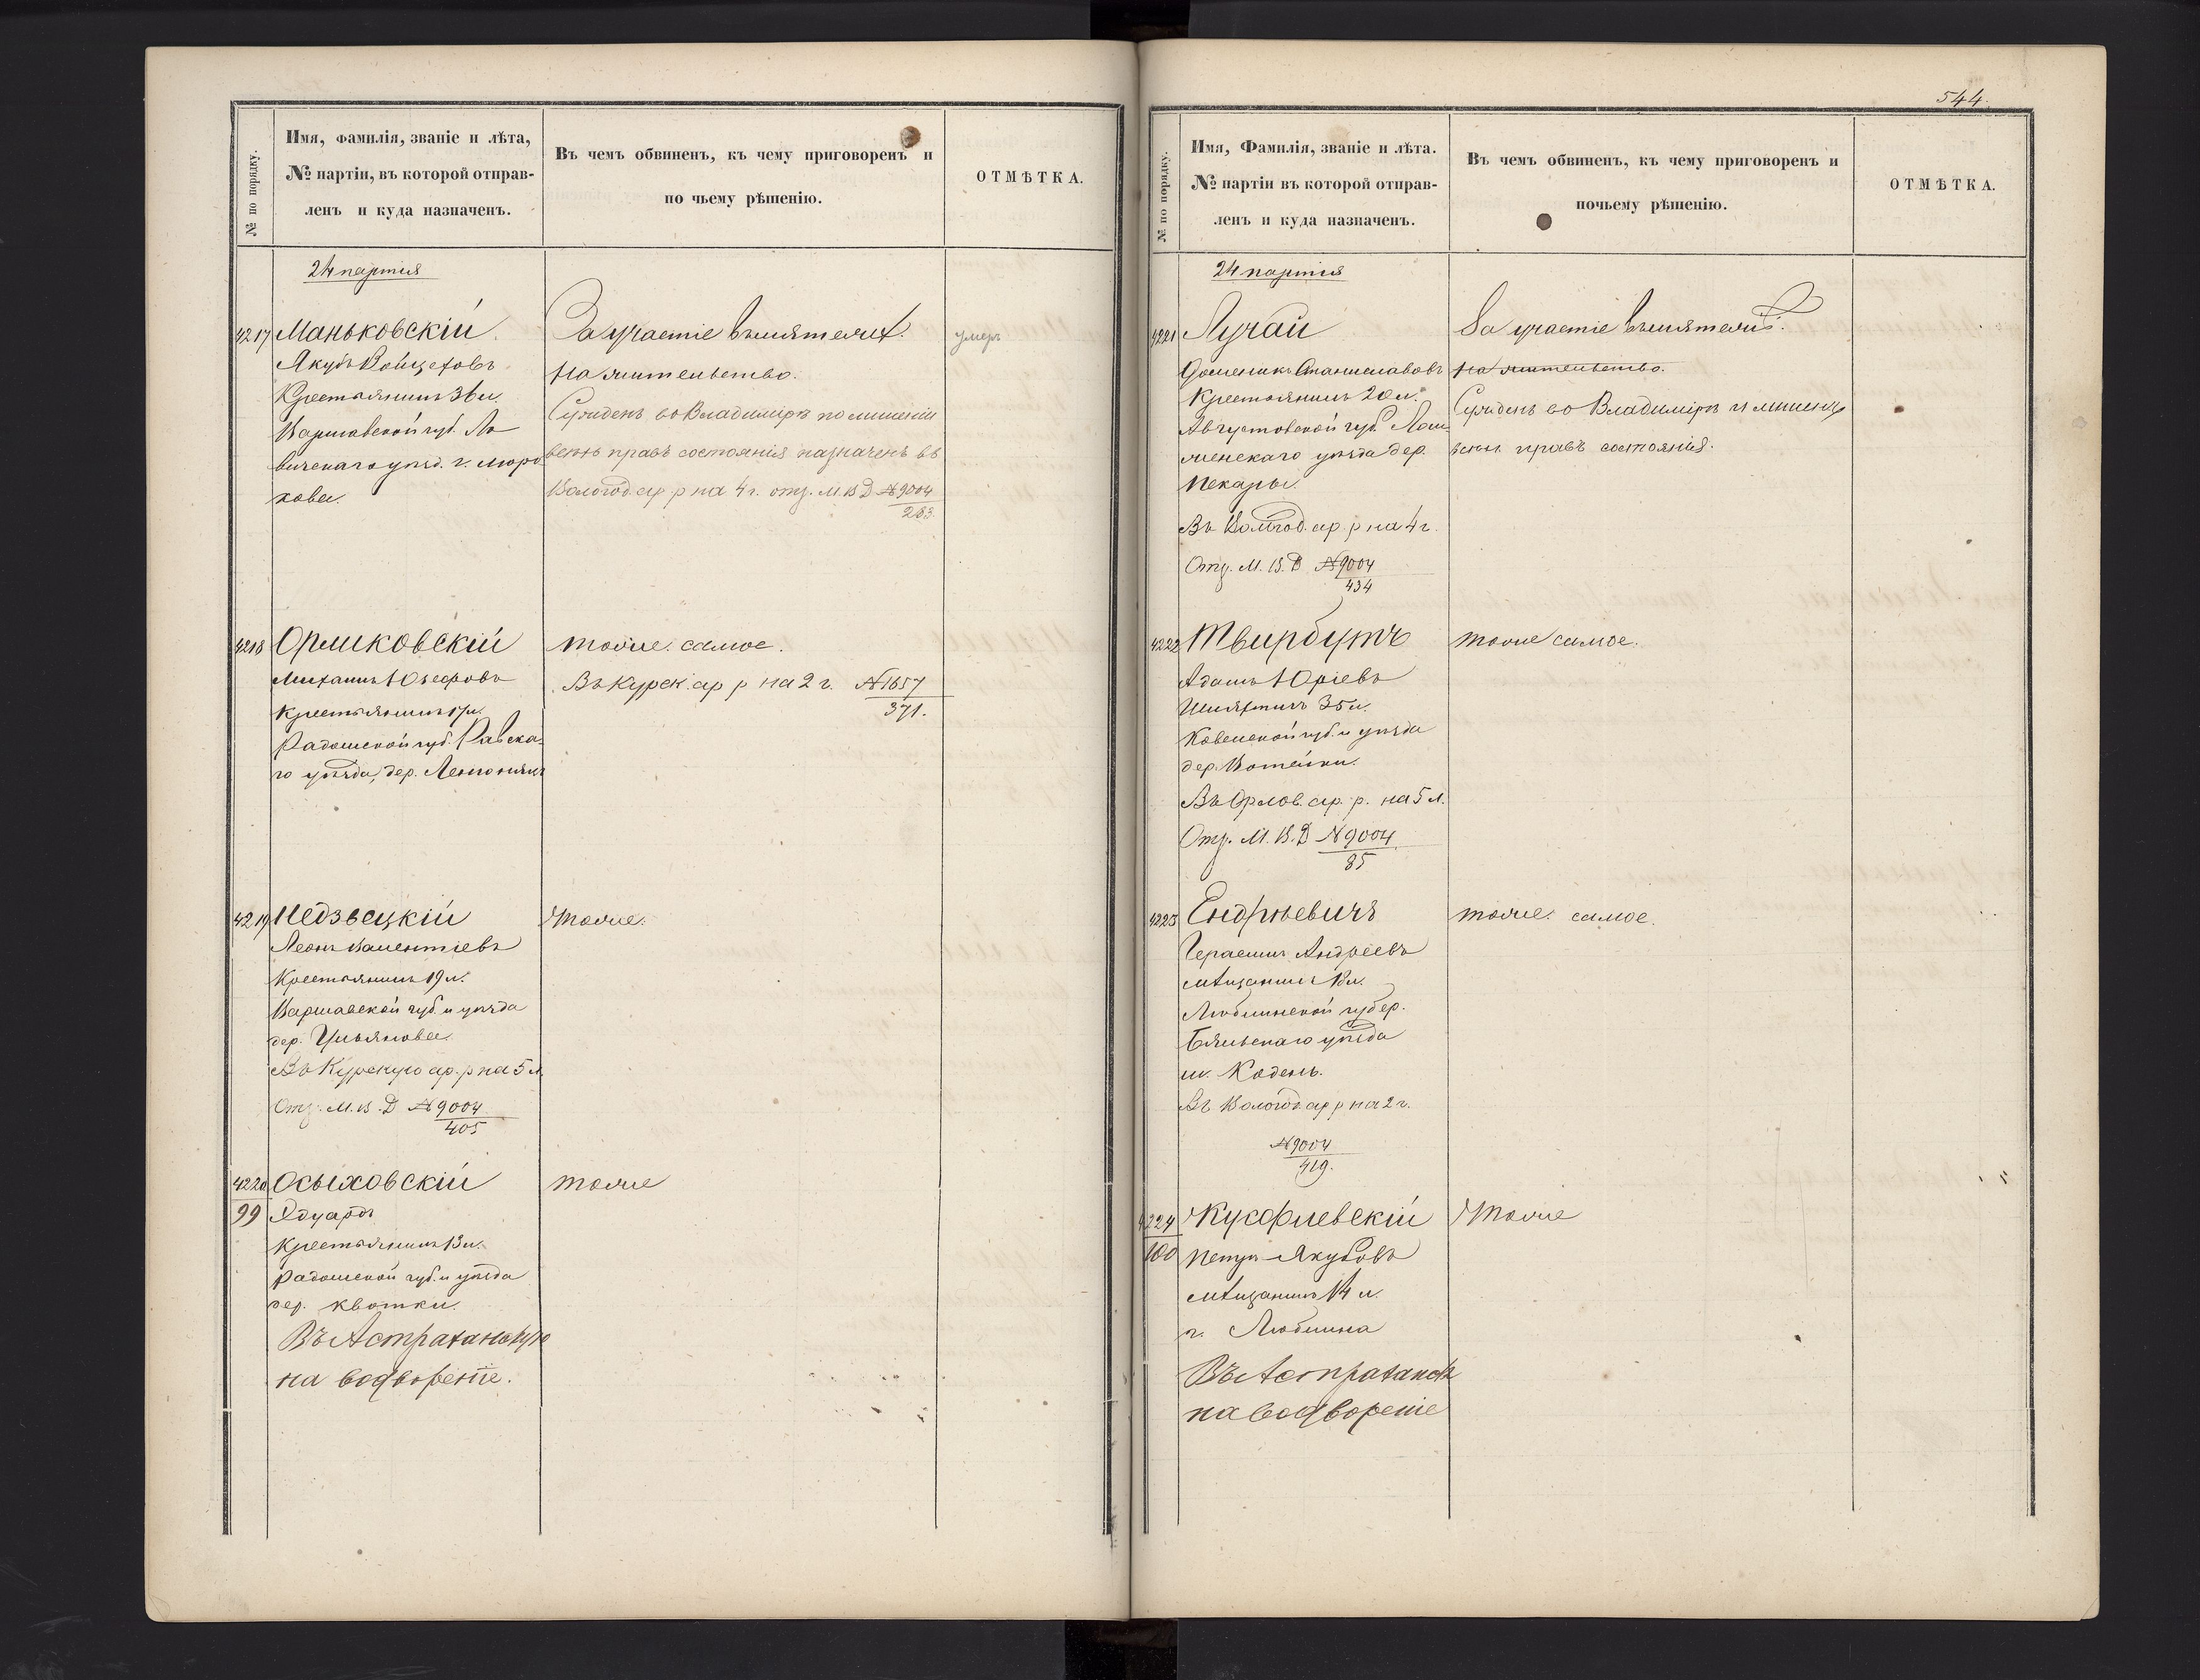 544.
№ по порядку.
Имя, фамилія, званіе и лѣта,
№ партіи, въ которой отправ-
ленъ и куда назначенъ.
Въ чемъ обвиненъ, къ чему приговоренъ и
по чьему рѣшенію.
ОТМѢТКА.
24 партія
4217 Маньковскій
Якубъ Войцеховъ
Крестьянинъ 36 л.
Варшавской губ. Ло
вичскаго уѣзд. г.
хова.
За участіе въ мятежѣ.
На жительство.
Сужденъ во Владимірѣ по лишеніи
всѣхъ правъ состоянія назначенъ въ
Вологод. ар р на 4 г. отз. М В Д № 9004
263.
умеръ
4218 Орликовскій
Михаилъ Юзефовъ
Крестьянинъ 17 л.
Радомской губ. Равска-
го уѣзда, дер.
тоже самое.
Въ Курск. ар р на 2 г. № 1657
371.
4219 Недзвецкій
Леонъ Валентіевъ
Крестьянинъ 19 л.
Варшавской губ. и уѣзда
дер. Ульяновка
Въ Курскую ар. р на 5 л.
Отз. М. В. Д № 9004
405
тоже.
4220 Осыховскій
99 Эдуардъ
Крестьянинъ 13 л.
Радомской губ. и уѣзда
дер. Квотки.
Въ Астраханскую
на водвореніе.
тоже
№ по порядку.
Имя, Фамилія, званіе и лѣта.
№ партіи въ которой отправ-
ленъ и куда назначенъ.
Въ чемъ обвиненъ, къ чему приговоренъ и
почьему рѣшенію.
ОТМѢТКА.
24 партія
4221 Лучай
Доменикъ Станиславовъ
Крестьянинъ 20 л.
Августовской губ. Лом-
женскаго уѣзда дер.
Пекары.
Въ Вологод. ар р на 4 г.
Отз. М. В. Д № 9004
434
За участіе въ мятежѣ.
На жительство.
Сужденъ во Владимірѣ и лишенъ
всѣхъ правъ состоянія.
4222 Твирбутъ
Адамъ Юріевъ
Шляхтичъ 35 л.
Ковенской губ. и уѣзда
дер. Вотейки.
Въ Орлов. ар. р. на 5 л.
Отз. М. В. Д № 9004
85
тоже самое.
4223 Ендржевичъ
Герасимъ Андреевъ
мѣщанинъ 18 л.
Люблинской губер.
Бяльскаго уѣзда
м. Кодень.
Въ Вологод ар р на 2 г.
№ 9004
419.
тоже самое.
4224 Жуфлевскій
100 Петръ Якубовъ
мѣщанинъ 14 л.
г. Люблина
Въ Астраханск
на водвореніе
тоже